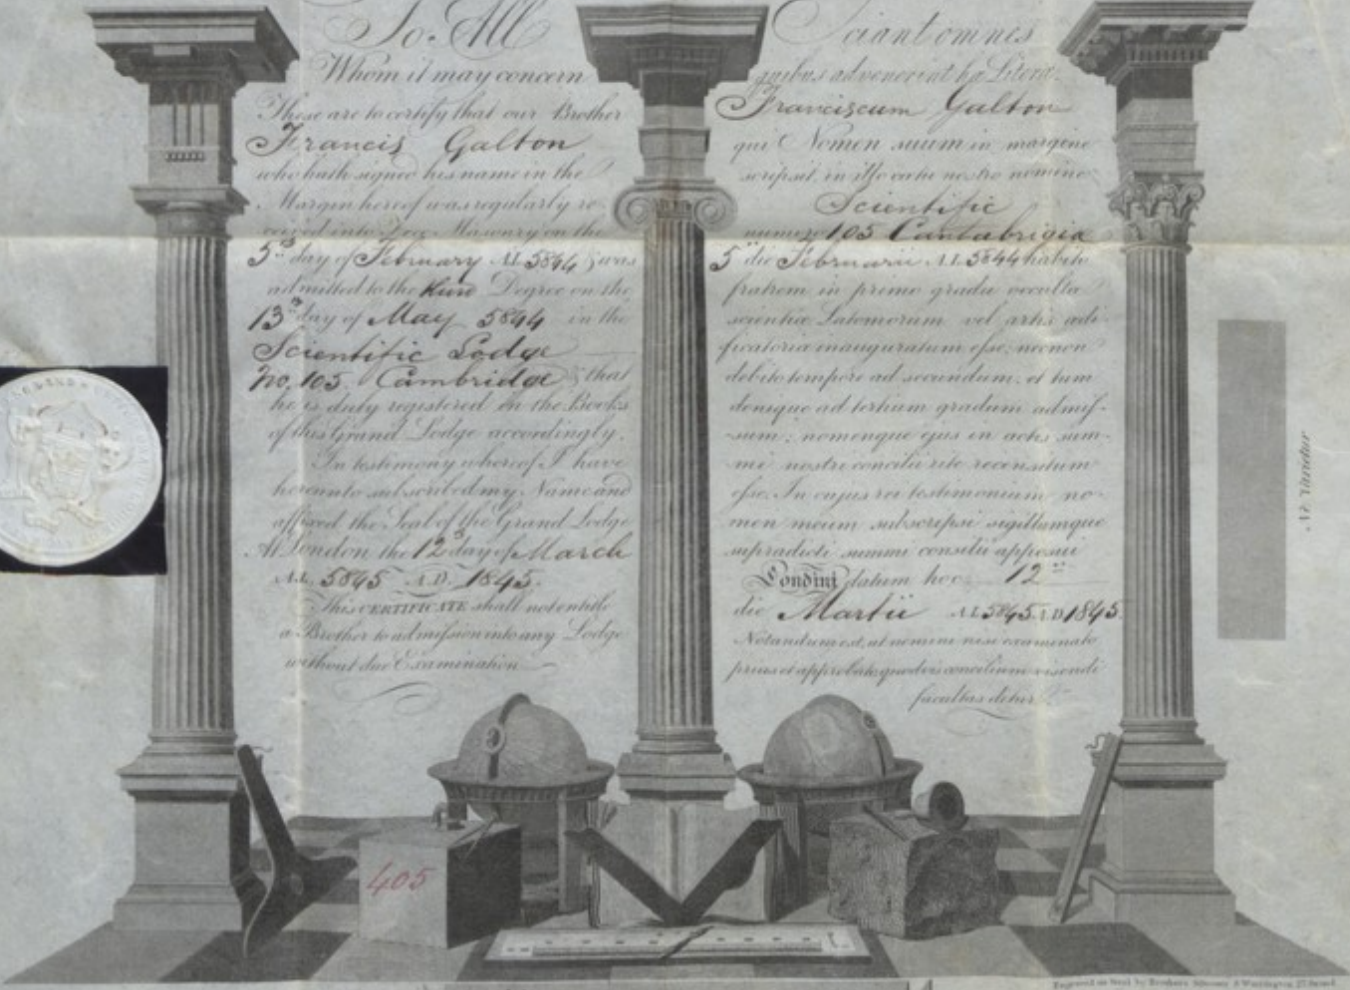 To All
Whom it may concern
These are to certify that our Brother
Francis Galton
who hath signed his name in the
Margin hereof was regularly re-
ceived into Free Masonry on the
5th day of February A.L. 5844 & was
admitted to the third Degree on the
13th day of May 5844 in the
Scientific Lodge
No. 105. Cambridge & that
he is duly registered in the Books
of this Grand Lodge accordingly.
In testimony whereof I have
hereunto subscribed my Name and
affixed the Seal of the Grand Lodge
At London the 12th day of March
A.L. 5845 A.D. 1845.
This CERTIFICATE shall not entitle
a Brother to admission into any Lodge
without due Examination
Sciant omnes
quibus advenerint hæ Literæ
Franciscum Galton
qui Nomen suum in margine
scripsit, in illo cœtu nostro nomine
Scientific
numero 105 Cantabrigia
5 die Februarii A.L. 5844 habito
fratrem in primo gradu occultæ
scientiæ Latomorum vel artis ædi-
ficatoriæ inauguratum esse; necnon
debito tempore ad secundum; et tum
denique ad tertium gradum admis-
sum; nomenque ejus in actis sum-
mi nostri concilii rite recensitum
esse. In cujus rei testimonium no-
men meum subscripsi sigillumque
supradicti summi concilii apposui
Londini datum hoc 12
die Martii A.L. 5845 A.D. 1845.
Notandum est, ut nemini nisi examinato
prius et approbato, quodvis concilium visendi
facultas detur
Ne Varietur
405
Engraved on Steel by Brothers